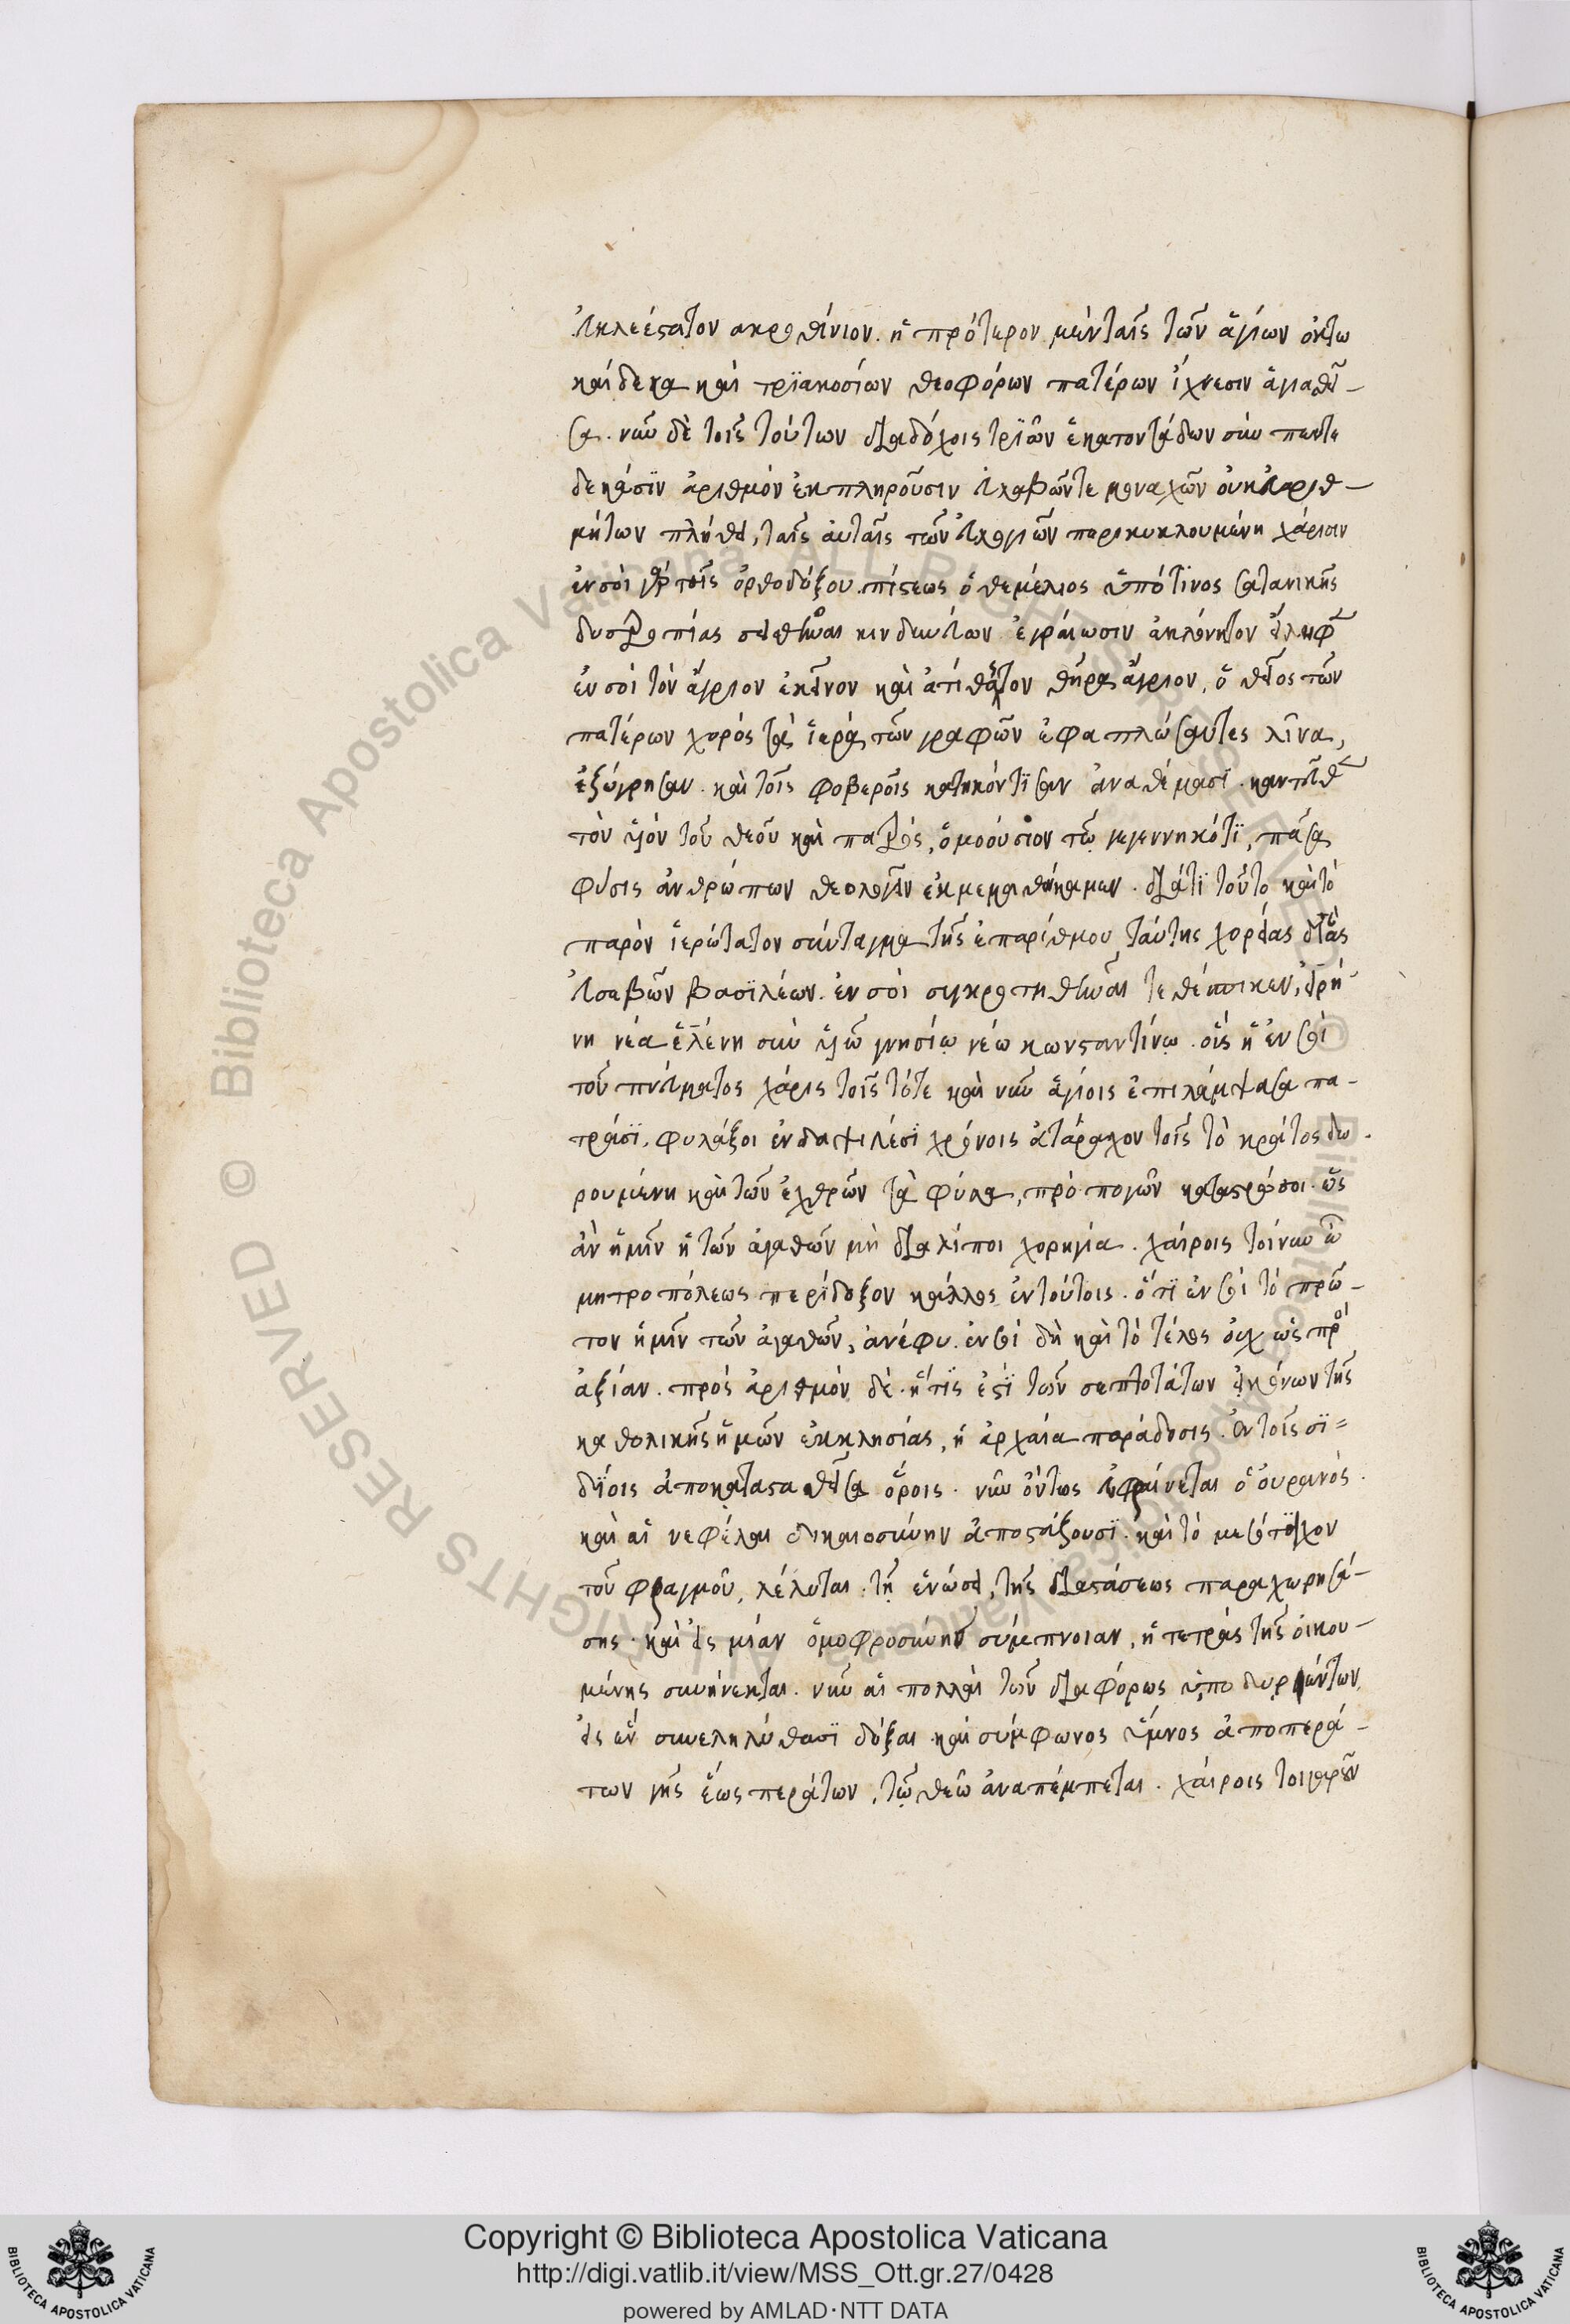 εὐκλεέστατον ακροθίνιον. ἡ πρότερον μὲν ταῖς τῶν ἁγίων ὀκτω
καίδεκα καὶ τρϊακοσίων θεοφόρων πατέρων ἴχνεσιν ἁγιαθεῖ-
σα. νῦν δὲ τοῖς τούτων διαδόχοις τρϊῶν ἑκατοντάδων σὺν πεντε
δεκάσϊν ἀριθμὸν ἐκπληροῦσιν εὐλαβῶν τε μοναχῶν οὐκ εὐαριθ-
μήτων πλήθει, ταῖς αὐταῖς τῶν εὐλογιῶν περικυκλουμένη χάρισιν
ἐν σοὶ γὰρ τοῖς ὀρθοδόξου πίστεως ὁ θεμέλιος ὑπό τϊνος σατανικῆς
δυστροπίας σεισθῆναι κινδυνεύων ἑδραίωσιν ἀκλόνητον εἴληφε
ἐν σοὶ τὸν ἄγριον ἐκεῖνον καὶ ἀτιθάσσον θῆρα ἄρειον, ὁ θεῖος τῶν
πατέρων χορὸς τὰ ἱερὰ τῶν γραφῶν ἐφαπλώσαντες λῖνα,
ἐξώγρησαν. καὶ τοῖς φοβεροῖς κατηκόντϊσαν ἀναθέμασϊ. καντεῦθεν
τὸν υἱὸν τοῦ θεοῦ καὶ πατρὸς, ὁμοούσιον τῷ γεγεννηκότϊ, πᾶσα
φύσις ἀνθρώπων θεολογεῖν ἐκμεμαθήκαμεν. διάτϊ τοῦτο καὶ τὸ
παρὸν ἱερώτατον σύνταγμα τῆς ἐπαρίθμου ταύτης χορείας διὰ τὲ
εὐσεβῶν βασϊλέων. ἐν σοὶ συγκροτηθῆναι τεθέσπικεν, εἰρή
νη νέα ἑλένη σὺν υἱῷ γνησίῳ νέω κωνσταντίνῳ. οἷς ἡ ἐν σοὶ
τοῦ πνεύματος χάρις τοῖς τότε καὶ νῦν ἁγίοις ἐπιλάμψασα πα-
τράσϊ, φυλάξοι ἐν δαψιλέσϊ χρόνοις ἀτάραχον τοῖς τὸ κράτος δω
ρουμένη καὶ τῶν ἐχθρῶν τὰ φύλα, πρὸ ποδῶν καταστρώσοι. ὡς
ἂν ἡμῖν ἡ τῶν ἀγαθῶν μὴ διαλίποι χορηγία. χαίροις τοίνυν ὦ
μητροπόλεως περίδοξον κάλλος ἐν τούτοις. ὅτϊ ἐν σοὶ τὸ πρῶ-
τον ἡμῖν τῶν ἀγαθῶν, ἀνέφυ. ἐν σοὶ δὴ καὶ τὸ τέλος οὐχ ὡς πρὸς
ἀξίαν. πρὸς ἀριθμὸν δέ. ἥτϊς ἐστϊ τῶν σεπτοτάτων εἰκόνων τῆς
καθολικῆς ἡμῶν ἐκκλησίας, ἡ ἀρχαία παράδοσις. ἐν τοῖς οἰ=
δϊοις ἀποκατασταθεῖσα ὅροις. νῦν ὄντως εὐφραίνεται ὁ οὐρανὸς.
καὶ αἱ νεφέλαι δικαιοσύνην ἀποστάξουσϊ. καὶ τὸ μεσότοιχον
τοῦ φραγμοῦ, λέλυται. τῇ ἑνώσει, τῆς διαστάσεως παραχωρησά-
σης. καὶ εἰς μίαν ὁμοφροσύνης σύμπνοιαν, ἡ τετρὰς τῆς οἰκου-
μένης συνήνεκται. νῦν αἱ πολλαὶ τῶν διαφόρως ὑποδυράντων,
εἰς ἓν συνεληλύθασϊ δόξαι καὶ σύμφωνος ὕμνος ἀποπερά-
των γῆς ἕως περάτων, τῷ θεῷ ἀναπέμπεται. χαίροις τοιγαροῦν
Copyright © Biblioteca Apostolica Vaticana
http://digi.vatlib.it/view/MSS_Ott.gr.27/0428
powered by AMLAD·NTT DATA